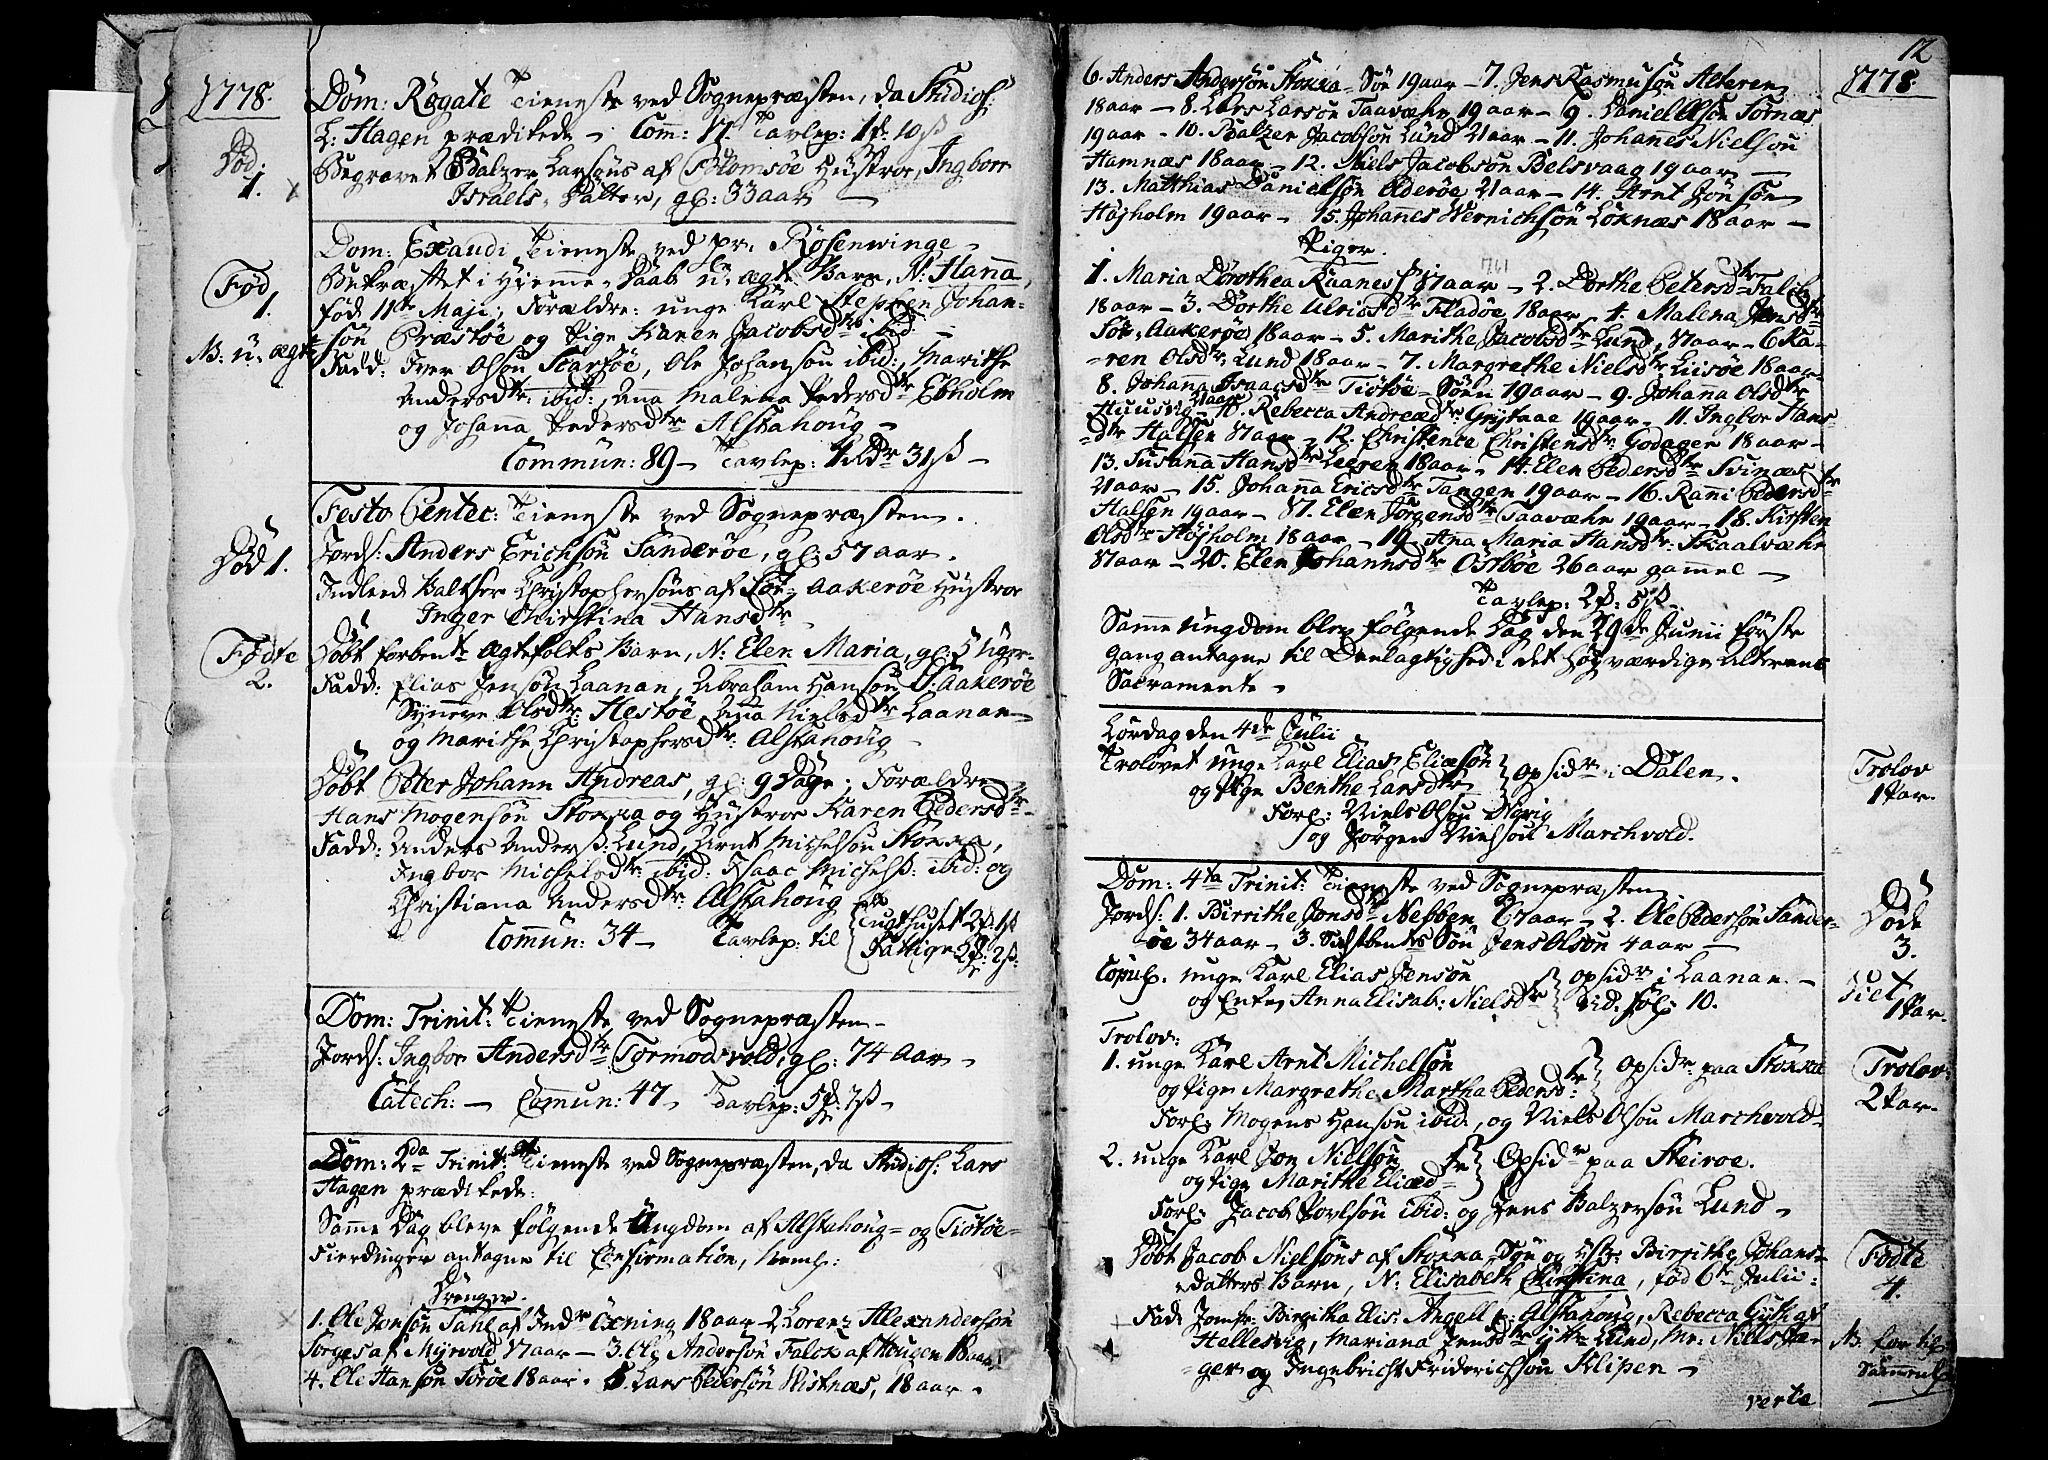 1778.
Dom: Rogate Tieneste ved Sognepræsten, da Studios:
L: Hagen prædikede - Comm: 17. Tavlep: 1 10ß
Død
1.
Begravet Balzer Larsøns af Blomsøe Hustroe, Ingborr
Israels Datter, gl: 33 aar -
Dom: Exaudi Tieneste ved pr. Rosenwinge -
Fød
1.
Bekræftet i Hiemme-Daab u-ægte Barn, N: Hanna,
fød 11te Maji; Forældre: unge Karl Stephen Johan-
NB: u-ægte
søn Præstøe og Pige Karen Jacobsdtr ibid: -
Fadd: Iver Olsøn Skarsøe, Ole Johansøn ibid:, Marithe
Andersdtr ibid:, Ana Malena Pedersdtr Ebholm
og Johanna Pedersdtr Alstahoug -
Commun: 89 - Tavlep: 1 31ß -
Festo Pentec: Tieneste ved Sognepræsten.
Død 1.
Jords: Anders Erichsøn Sanderøe, gl: 57 aar.
Indleed Baltser Christophersøns af Sør-Aakerøe Hustroe
Inger Christina Hansdtr
Fødte
2.
Døbt Ægtefolks Barn, N: Elen Maria, gl: 5 Uger.
Fadd: Elias Jensøn Laanan, Abraham Hansøn S: Aakerøe
Synneve Olsdtr Hestøe, Ana Nielsdtr Laanan
og Marithe Christophersdtr: Alstahoug -
Døbt Peter Johann Andreas, gl: 9 Dage; Forældre
Hans Mogensøn Stokka og Hustroe Karen Pedersdtr -
Fadd: Anders Anders: Lund, Arnt Michelsøn Stokka,
Ingbor Michelsdtr: ibid: Isaac Michels: ibid: og
Christiana Andersdtr: Alstahoug
Commun: 34 - Tavlep: til Tugthuset 2 1ß
Fattige 2 2ß
Dom: Trinit: Tieneste ved Sognepræsten -
Jords: Ingbor Andersdtr Tormodsvold, gl: 74 Aar -
Catech: - Commun: 47 - Tavlep: 5 7ß -
Dom: 2da Trinit: Tieneste ved Sognepræsten, da Studios: Lars
Hagen prædikede:
Samme Dag bleve følgende Ungdom af Alstahoug- og Tiøtøe-
Fierdinger antagne til Confirmation, neml:
Drenger.
1. Ole Jonsøn Dahl af Indr Øxning 18 aar - 2 Lorenz Alexandersøn
Sorges af Myrvold 17 aar - 3. Ole Andersøn Falck af Hougen 18 aar
4. Ole Hansøn Sorøe 18 aar. 5. Lars Pedersøn Qvistnæs, 18 aar.
12
1778.
6. Anders Andersøn Stokka-Søn 19 aar - 7. Jens Rasmusøn Alteren
18 aar - 8. Lars Larsøn Taavæhr 19 aar - 9. Daniel Olsøn Sørnæs
19 aar - 10. Balzer Jacobsøn Lund 21 aar - 11. Johanes Nielsøn
Hamnæs 18 aar - 12. Niels Jacobsøn Belsvaag 19 aar -
13. Matthias Danielsøn Olderøe 21 aar - 14. Arnt Jonsøn
Højholm 19 aar - 15. Johanes Wernichsøn Loknæs 18 aar -
Piger.
1. Maria Dorothea Raanes 17 aar - 2. Dorthe Petersdtr Falch
18 aar - 3. Dorthe Ulricsdtr Fladøe 18 aar - 4. Malena Jensdtr
Sør-Aakerøe 18 aar - 5. Marithe Jacobsdtr Lund, 17 aar - 6 Ka-
-ren Olsdtr Lund 18 aar - 7. Margrethe Nielsdtr Licsøe 18 aar
8. Johana Isaacsdtr Tiøtøe-Søen 19 aar - 9. Johanna Olsdtr
Huusvig 21 aar - 10. Rebecca Andreædtr: 19 aar - 11. Ingbor Hans
dtr Halsen 17 aar - 12. Christence Christensdtr Godagen 18 aar -
13. Susanna Hansdtr Leeren 18 aar - 14. Elen Pedersdtr Svinæs
21 aar - 15. Johanna Ericsdtr Tangen 19 aar - 16. Ranni Pedersdtr
Halsen 19 aar - 17. Elen Jørgensdtr Taavæhr 19 aar - 18. Kirsten
Olsdtr Højholm 18 aar - 19. Ana Maria Hansdtr: Skaalvæhr
17 aar - 20. Elen Johannsdtr Østbøe 26 aar gammel -
Tavlep: 2 5ß
Samme Ungdom blev følgende Dag den 29de Junii første
Gang antagne til Deelagtighed i det høyværdige Alterens
Sacramente -
Lørdag den 4de Julii
Trolovet unge Karl Elias Eliæsøn
og Pige Benthe Larsdtr } Opsidr i Dalen.
Forl: Niels Olsøn Navig
og Jørgen Nielsøn Marchvold.
Trolov
1 Par.
Dom: 4ta Trinit: Tieneste ved Sognepræsten.
Jords: 1. Birrithe Jonsdtr Nebben 67 aar - 2. Ole Pedersøn Sander-
øe 34 aar - 3. Søn Jens Olsøn 4 aar -
Døde
3.
Copul: unge Karl Elias Jensøn
og Enke Anna Elisab: Nielsdtr } opsidr i Laanan. -
vid. fol: 10.
Viet
1 Par.
Trolov:
1. unge Karl Arnt Michelsøn
og Pige Margrethe Martha Pedersdtr } opsidr paa Stokka
Forl: Mogens Hansøn ibid:, og Niels Olsøn Marchvold -
Trolov:
2 Par.
2. unge Karl Jon Nielsøn
og Pige Marithe Eliædtr } Opsidr paa Steiroe.
Forl: Jacob Povlsøn ibid: og Jens Balzersøn Lund -
Døbt Jacob Nielsøns af Stokka-Søn og Hstr: Birrithe Johans-
-datters Barn, N: Elisabeth Christina, fød 6te Julii:
Fødte
4.
Fadd: Jomfr: Birgitha Elis: Angell Alstahoug, Rebecca Gyth af
Hellesvig, Mariana Jensdtr Lund, Mr: Nills Jæ-
ger og Ingebricht Friderichsøn Klipen -
verte